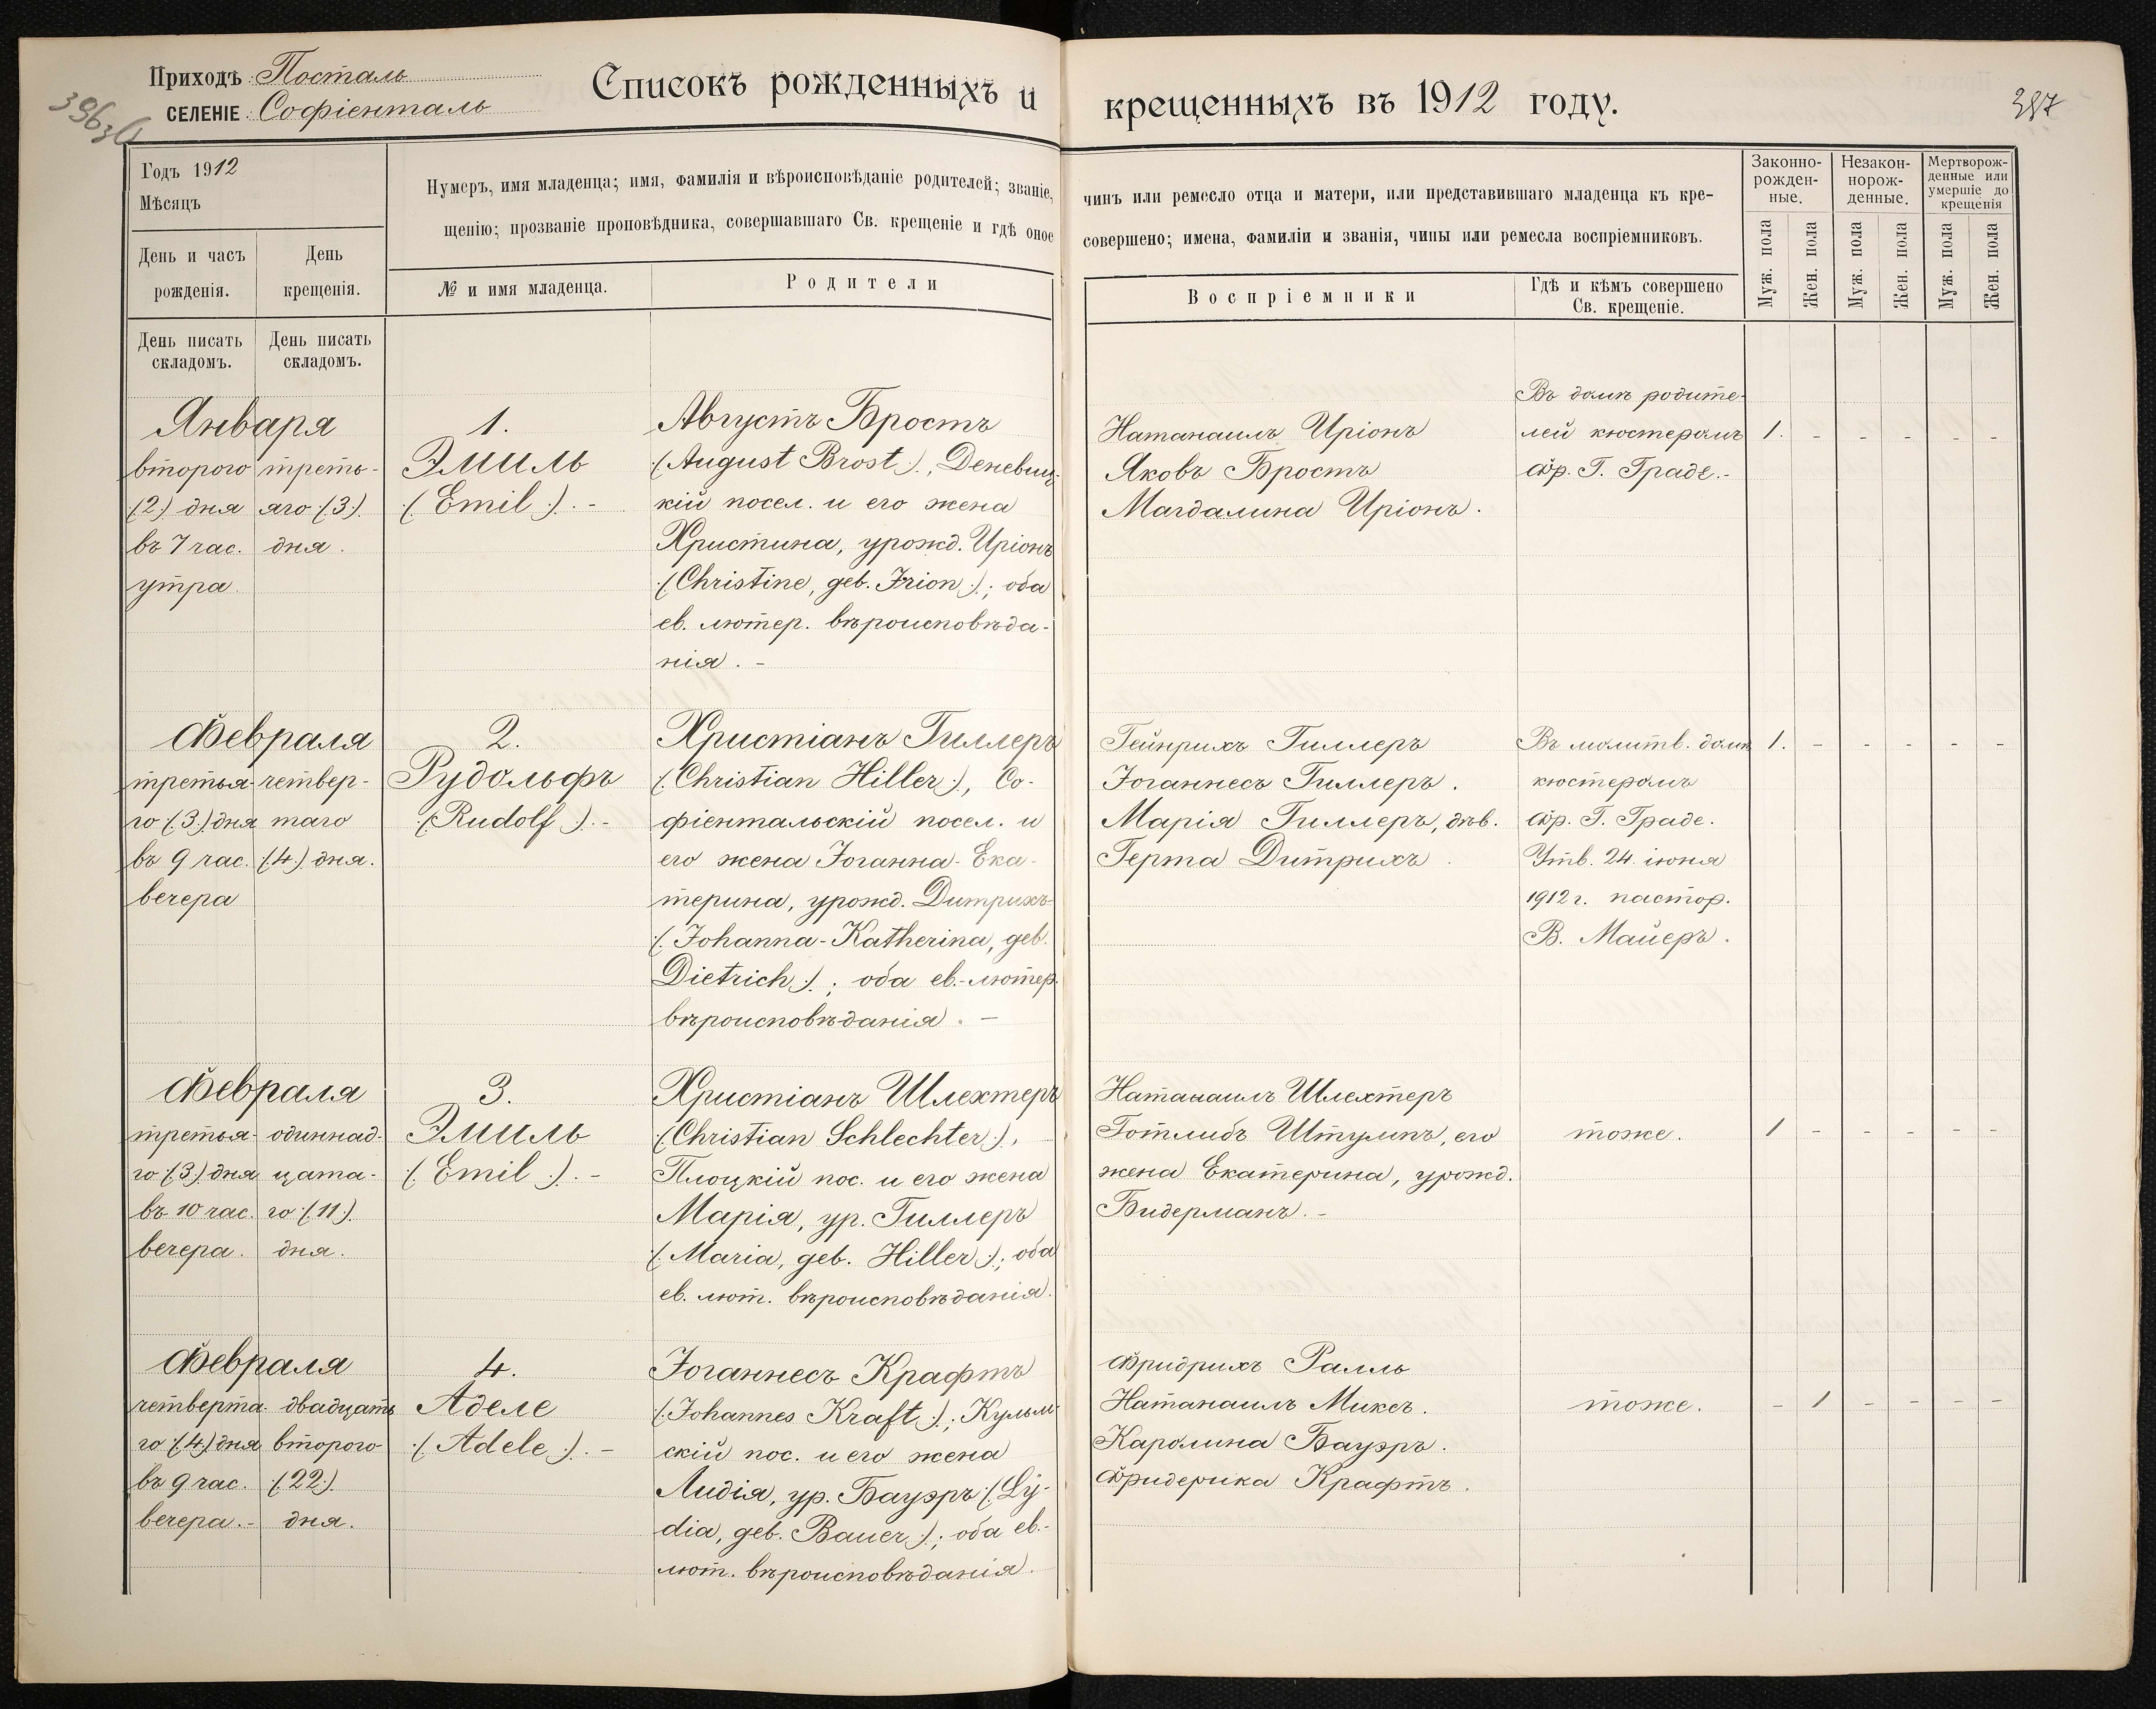 Приходъ: Посталь
СЕЛЕНІЕ: Софіенталь
Списокъ рожденныхъ и крещенныхъ въ 1912 году.
387
Годъ 1912
Мѣсяцъ
День и часъ рожденія.
День крещенія.
Нумеръ, имя младенца; имя, фамилія и вѣроисповѣданіе родителей; званіе, чинъ или ремесло отца и матери, или представившаго младенца къ кре-
щенію; прозваніе проповѣдника, совершавшаго Св. крещеніе и гдѣ оное совершено; имена, фамиліи и званія, чины или ремесла воспріемниковъ.
№ и имя младенца.
Родители
Воспріемники
Гдѣ и кѣмъ совершено
Св. крещеніе.
Законно-
рожден-
ные.
Незакон-
норож-
денные.
Мертворож-
денные или
умершіе до
крещенія
Муж. пола
Жен. пола
Муж. пола
Жен. пола
Муж. пола
Жен. пола
День писать
складомъ.
День писать
складомъ.
Января
второго
(2) дня
въ 7 час.
утра
треть-
яго (3)
дня.
1.
Эмиль
(Emil). -
Августъ Бростъ
(August Brost), Деневиц-
кій посел. и его жена
Христина, урожд. Иріонъ
(Christine, geb. Irion); оба
ев. лютер. вѣроисповѣда-
нія. -
Натанаилъ Иріонъ
Яковъ Бростъ
Магдалина Иріонъ.
Въ домѣ родите-
лей кюстеромъ
Фр. Г. Граде. -
1. - - - - -
Февраля
третья-
го (3) дня
въ 9 час.
вечера
четвер-
таго
(4) дня.
2.
Рудольфъ
(Rudolf). -
Христіанъ Гиллеръ
(Christian Hiller), Со-
фіентальскій посел. и
его жена Іоганна-Ека-
терина, урожд. Дитрихъ
(Johanna-Katherina, geb.
Dietrich); оба ев.-лютер.
вѣроисповѣданія. -
Гейнрихъ Гиллеръ
Іоганнесъ Гиллеръ.
Марія Гиллеръ, дѣв.
Герта Дитрихъ.
Въ молитв. домѣ
кюстеромъ
Фр. Г. Граде.
Утв. 24 іюня
1912 г. пастор.
В. Майеръ.
1. - - - - -
Февраля
третья-
го (3) дня
въ 10 час.
вечера.
одиннад-
цата-
го (11)
дня.
3.
Эмиль
(Emil). -
Христіанъ Шлехтеръ
(Christian Schlechter),
Плоцкій пос. и его жена
Марія, ур. Гиллеръ
(Maria, geb. Hiller); оба
ев. лют. вѣроисповѣданія.
Натанаилъ Шлехтеръ
Готлибъ Штумпъ, его
жена Екатерина, урожд.
Бидерманъ. -
тоже.
1 - - - - -
Февраля
четверта-
го (4) дня
въ 9 час.
вечера. -
двадцать
второго
(22)
дня.
4.
Аделе
(Adele). -
Іоганнесъ Крафтъ
(Johannes Kraft), Кульм-
скій пос. и его жена
Лидія, ур. Бауэръ (Ly-
dia, geb. Bauer); оба ев.-
лют. вѣроисповѣданія.
Фридрихъ Ралль
Натанаилъ Миксъ.
Каролина Бауэръ.
Фридерика Крафтъ.
тоже.
- 1 - - - -